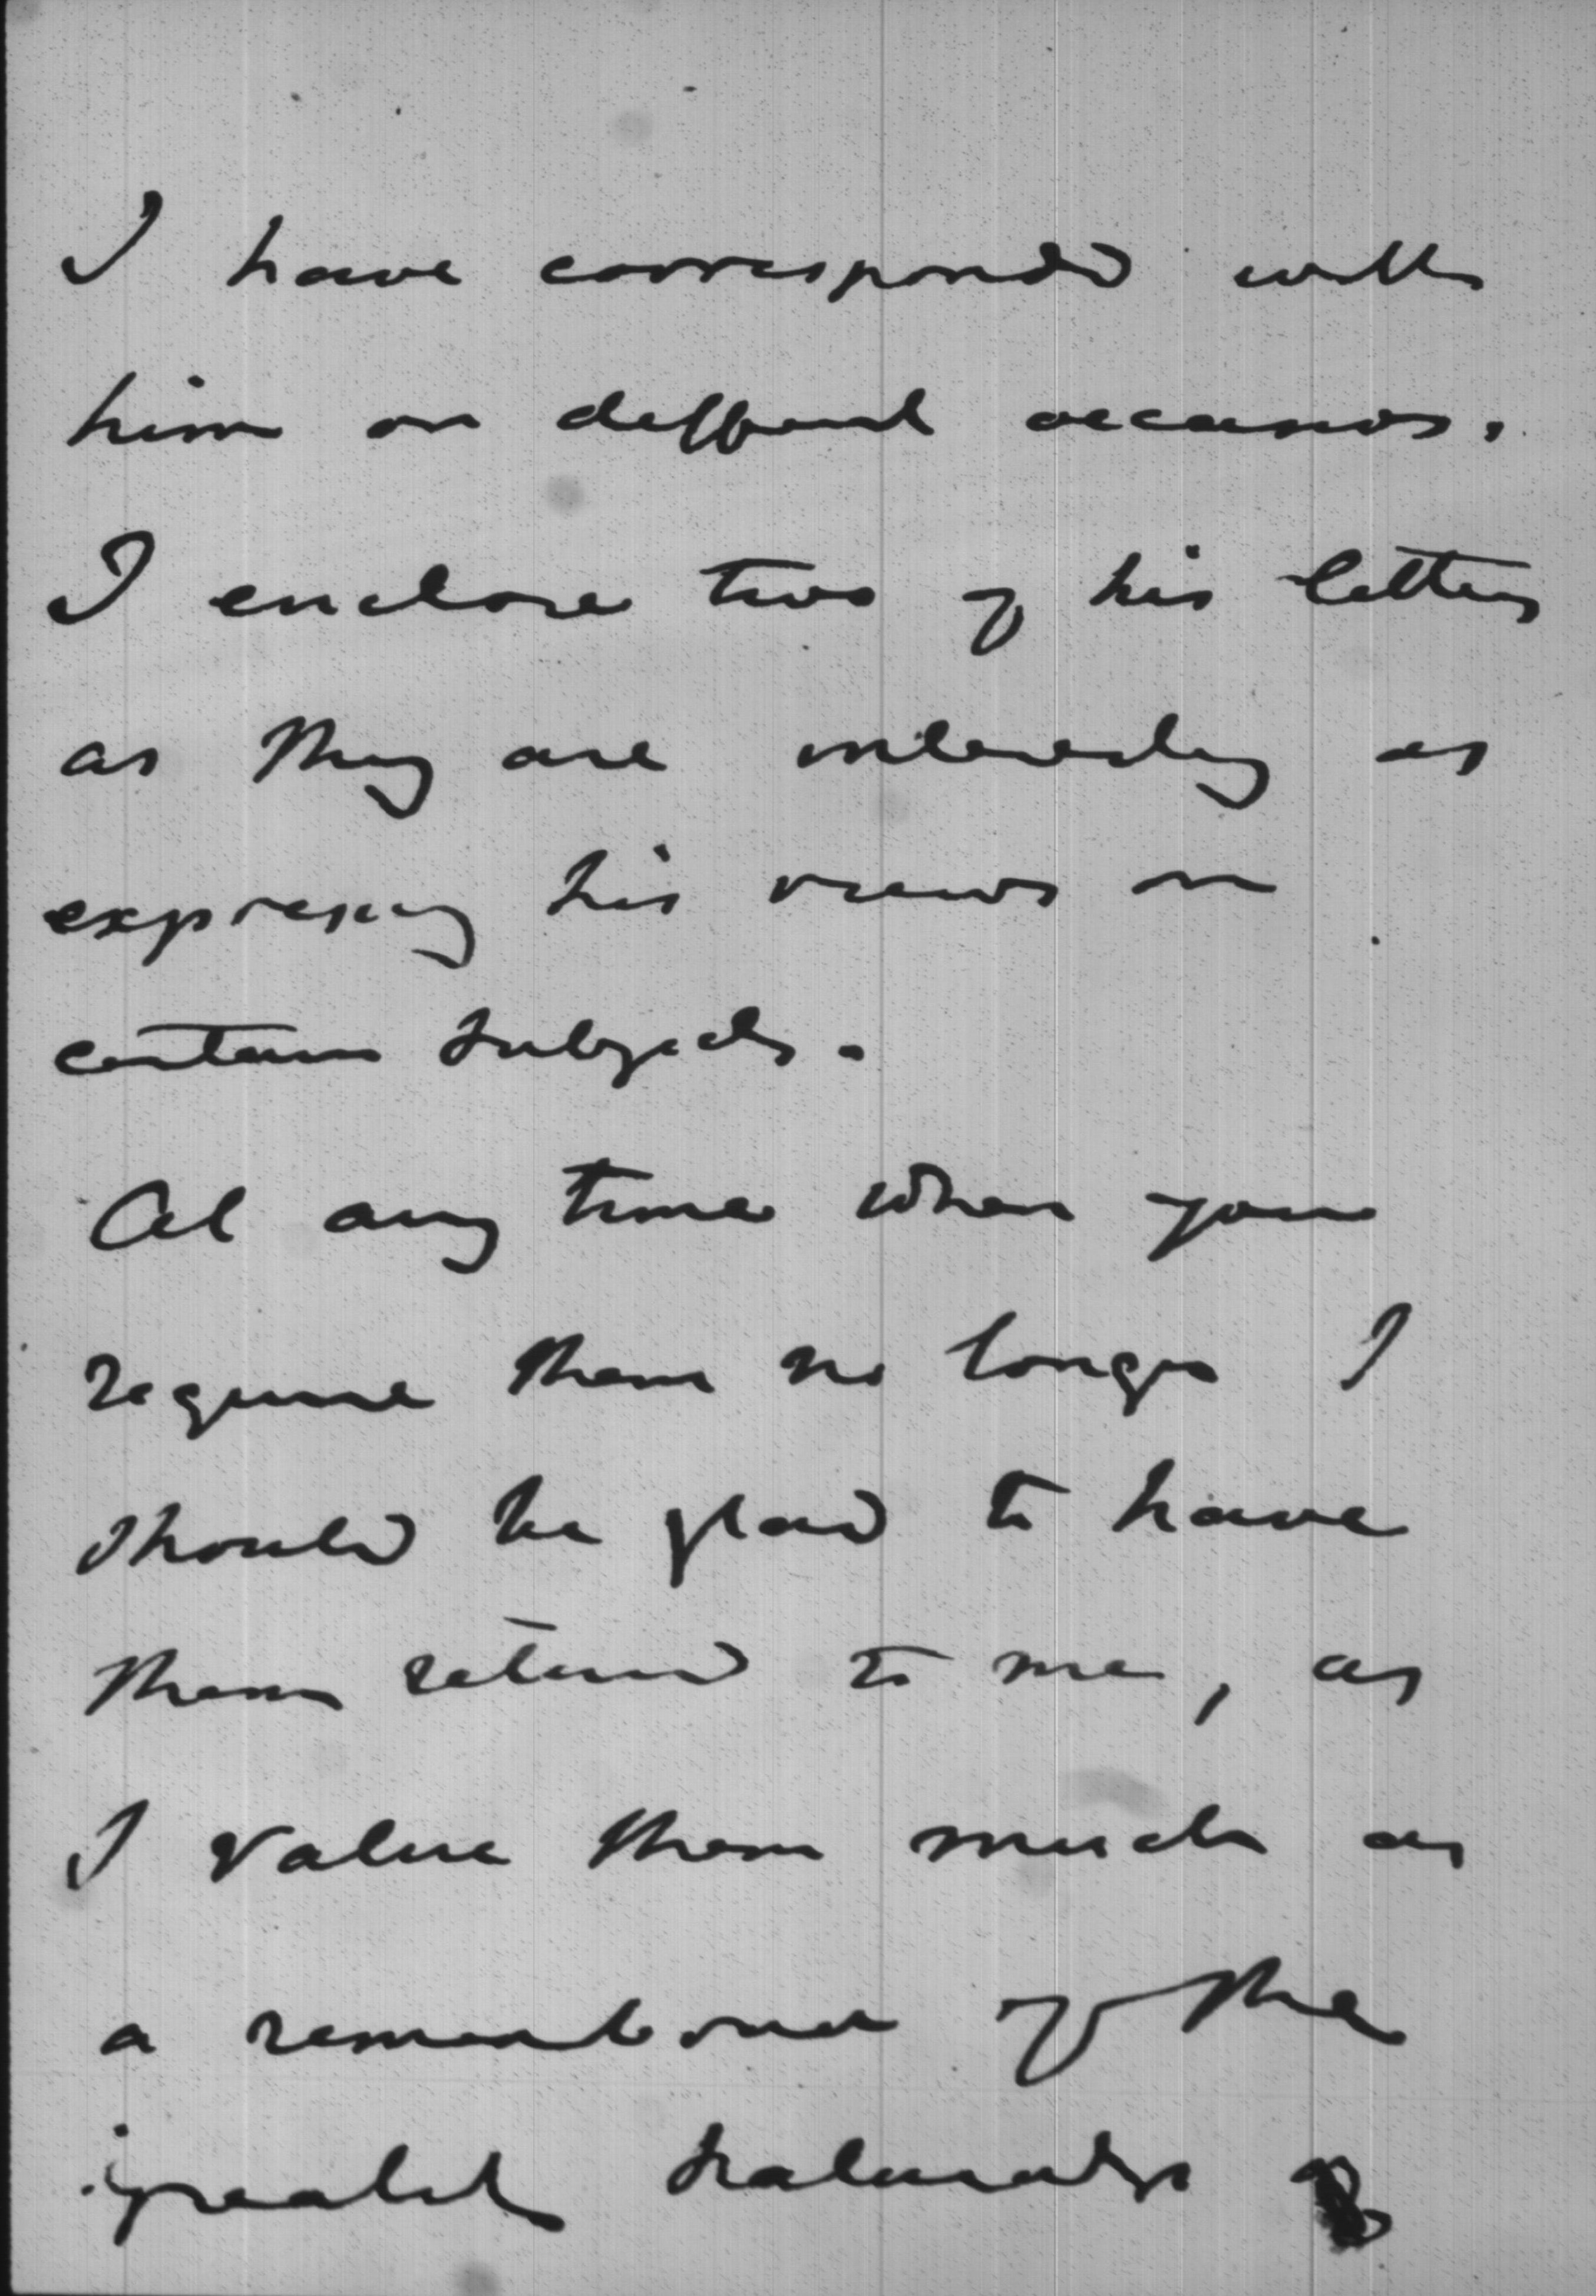 I have corresponded with
him on different occasions.
I enclose two of his letters
as they are interesting as
expressing his views on
certain subjects.
At any time when you
require them no longer I
should be glad to have
them returned to me, as
I value them much as
a remembrance of the
greatest naturalist of